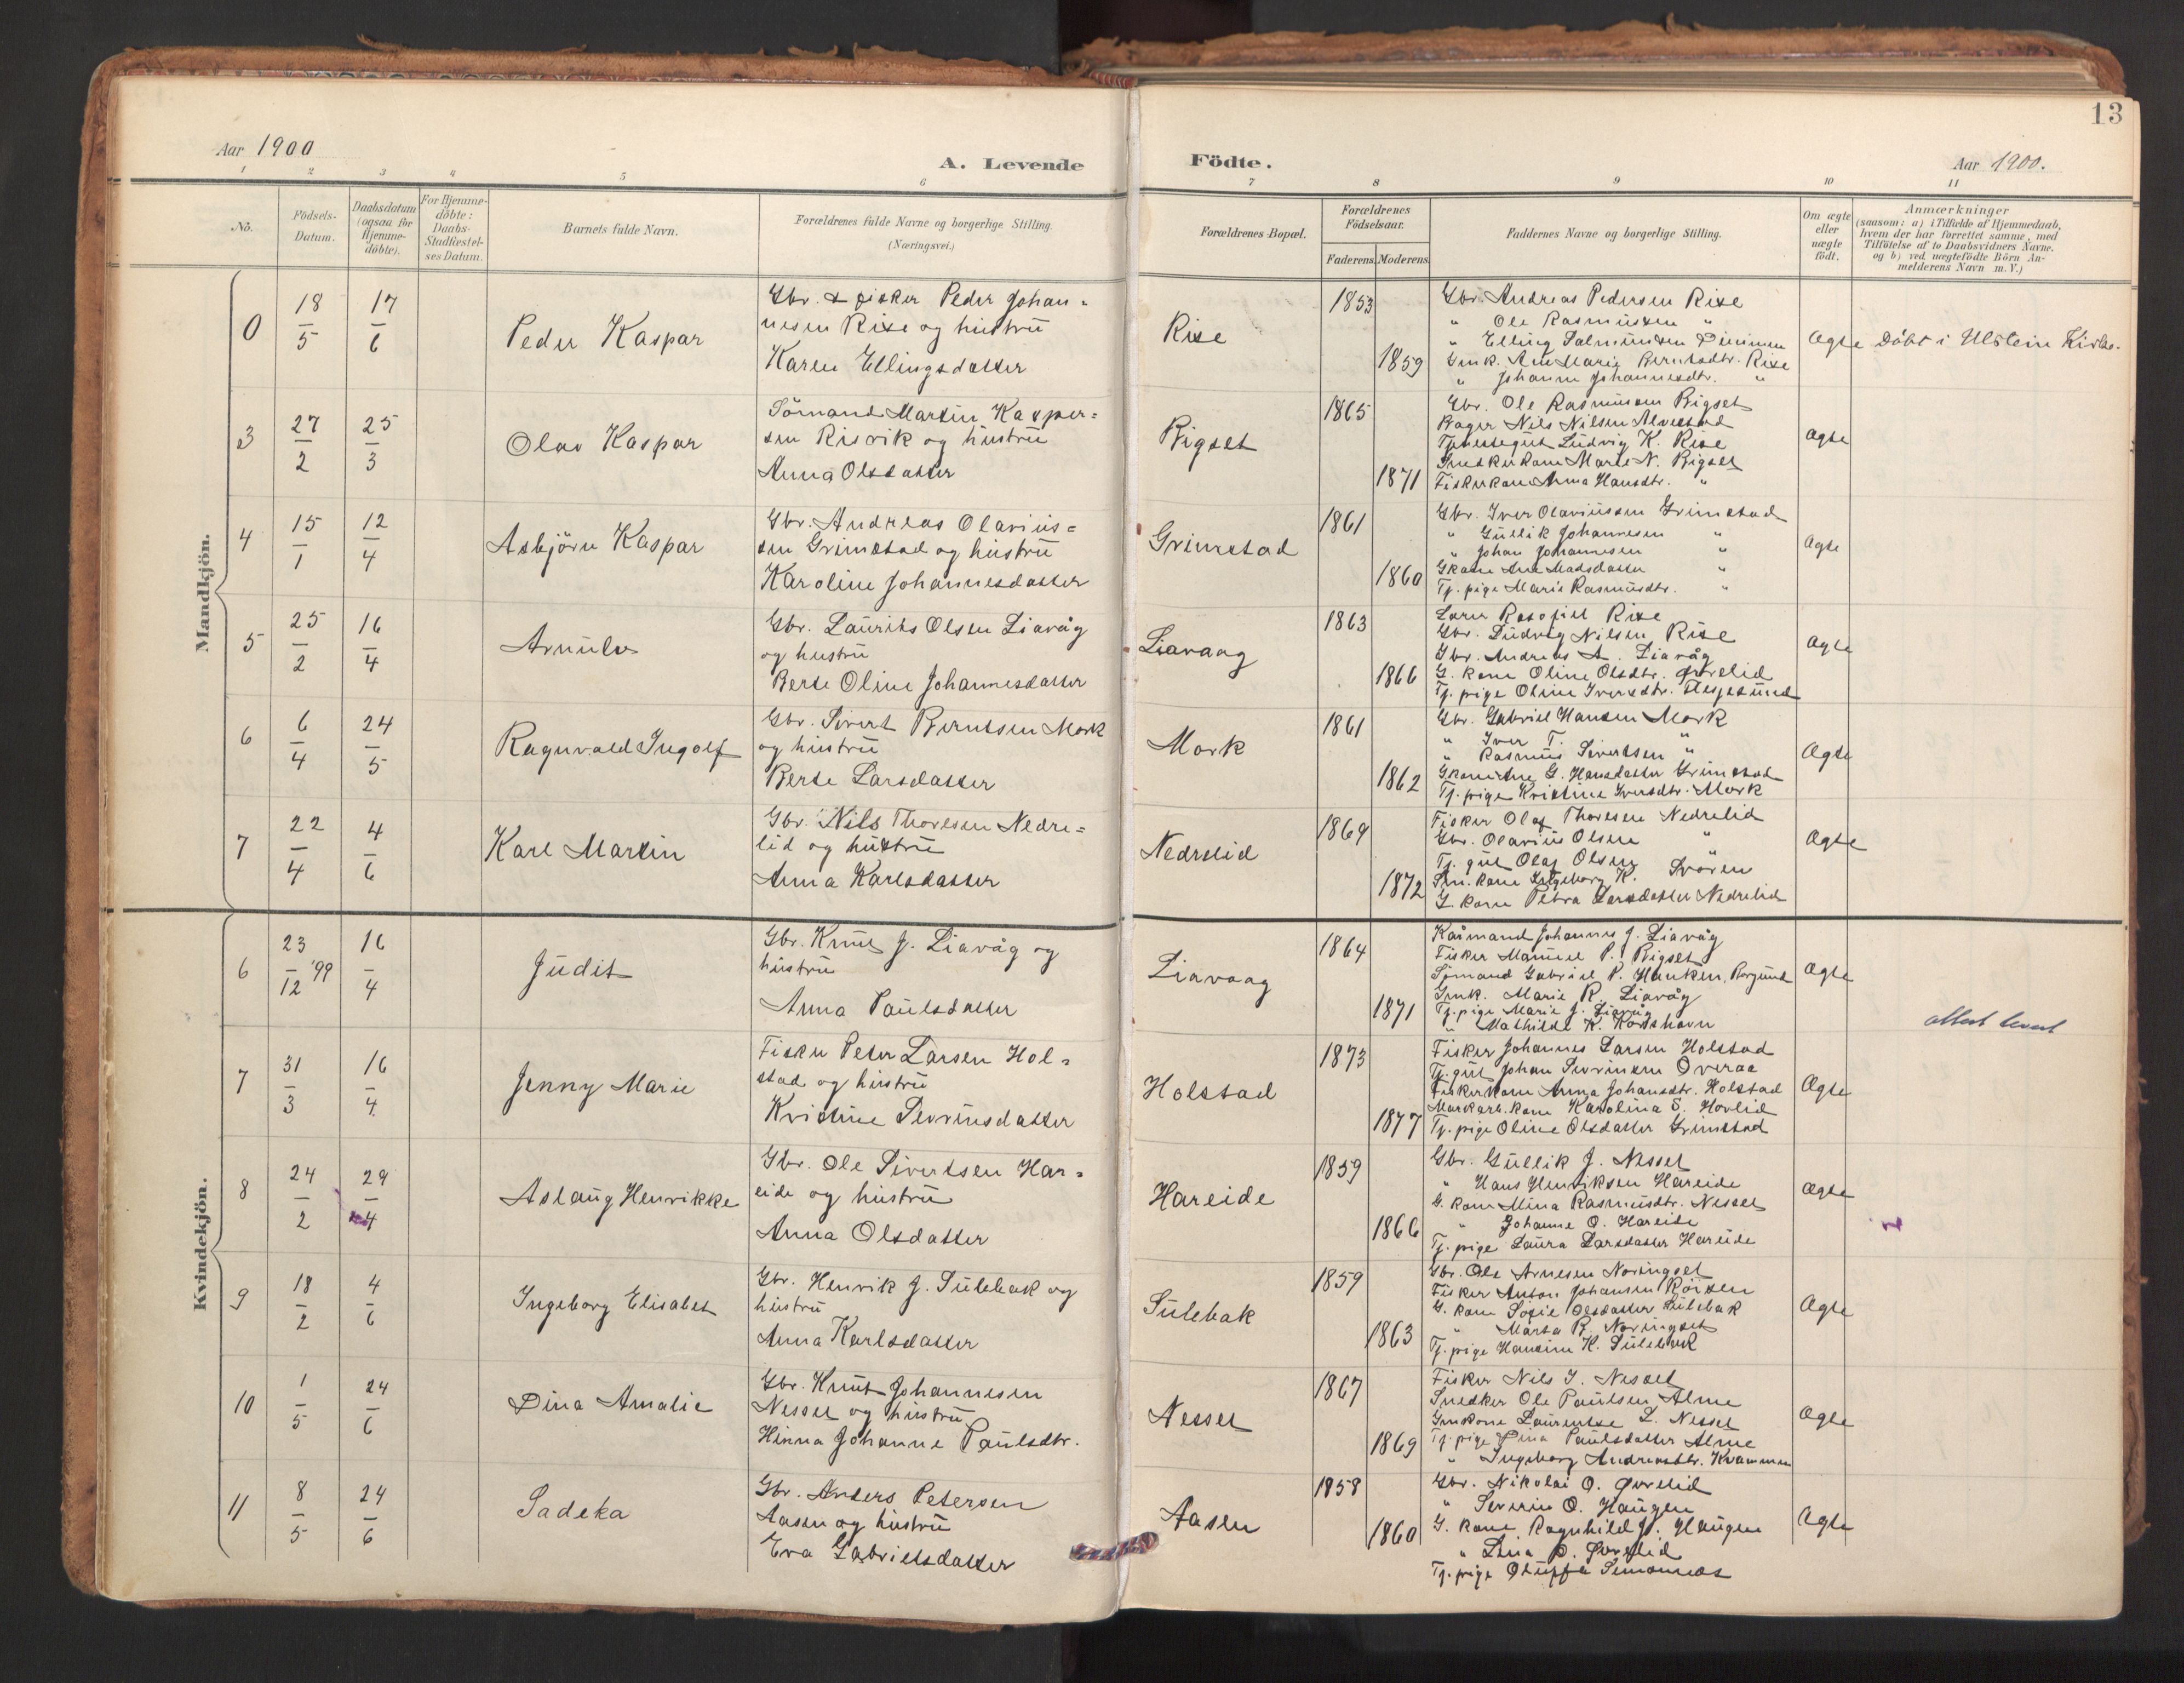 13
Aar 1900
A. Levende
Födte.
Aar 1900.
1 2 3 4 5 6 7 8 9 10 11
No.
Födsels-
Datum.
Daabsdatum
(ogsaa for
Hjemme-
döbte).
For Hjemme-
döbte:
Daabs-
Stadfæstel-
ses Datum.
Barnets fulde Navn.
Forældrenes fulde Navne og borgerlige Stilling.
(Næringsvei.)
Forældrenes Bopæl.
Forældrenes
Födselsaar.
Faderens. Moderens.
Faddernes Navne og borgerlige Stilling.
Om ægte
eller
uægte
födt.
Anmærkninger
(saasom: a) i Tilfælde af Hjemmedaab,
hvem der har forrettet samme, med
Tilföielse af to Daabsvidners Navne.
og b) ved uægtefödte Börn An-
melderens Navn m. V.)
Mandkjön.
0
18/5
17/6
Peder Kaspar
Gbr. & fisker Peder Johan-
nesen Rise og hustru
Karen Ellingsdatter
Rise
1853
1859
Gbr. Andreas Pedersen Rise
" Ole Rasmussen "
" Elling Salmunsen
Gmk. Ane Marie Berntsdtr. Rise
" Johanne Johannesdtr. "
Ægte
Döbt i Ulstein Kirke.
3
27/2
25/3
Olav Kaspar
Sömand Martin Kasper-
sen Risvik og hustru
Anna Olsdatter
Bigset
1865
1871
Gbr. Ole Rasmussen Bigset
Bager Nils Nilsen Alvestad
Tjenestegut Ludvig K. Rise
Snedkerkone Marte N. Bigset
Fiskerkone Anna Hansdtr. "
Ægte
4
15/1
12/4
Asbjörn Kaspar
Gbr. Andreas Olavius-
sen Grimstad og hustru
Karoline Johannesdatter
Grimstad
1861
1860
Gbr. Iver Olaviussen Grimstad
" Gullik Johannesen "
" Johan Johannesen "
Gkone Ane Madsdatter "
Tj. pige Marie Rasmusdtr. "
Ægte
5
25/2
16/4
Arnulv
Gbr. Laurits Olsen Liavåg
og hustru
Berte Oline Johannesdatter
Liavaag
1863
1866
Lærer Rasofiel Rise
Gbr. Ludvig Nilsen Rise
Gbr. Andreas A. Liavåg
G. kone Oline Olsdtr. Øvrelid
Tj. pige Oline Iversdtr. Flesjesund
Ægte
6
6/4
24/5
Ragnvald Ingolf
Gbr. Sivert Berntsen Mork
og hustru
Berte Larsdatter
Mork
1861
1862
Gbr. Gabriel Hansen Mork
" Iver T. "
" Rasmus Sivertsen "
Gkone Ane G. Hansdatter Grimstad
Tj. pige Kristine Iversdtr. Mork
Ægte
7
22/4
4/6
Karl Martin
Gbr. Nils Thoresen Nedre-
lid og hustru
Anna Karlsdatter
Nedrelid
1869
1872
Fisker Olaf Thoresen Nedrelid
Gbr. Olavius Olsen "
Tj. gut Olaf Olsen
Sm. kone Ingeborg K. Svören
G. kone Petra Larsdatter Nedrelid
Ægte
Kvindekjön.
6
23/12 '99
16/4
Judit
Gbr. Knut J. Liavåg og
hustru
Anna Paulsdatter
Liavaag
1864
1871
Kårmand Johannes J. Liavåg
Fisker Manuel P. Bigset
Sömand Gabriel P. Hauken, Borgund
Gmk. Marie R. Liavåg
Tj. pige Marie J. Liavåg
" Mathilde K. Korshavn
Ægte
attest levert
7
31/3
16/4
Jenny Marie
Fisker Peter Larsen Hol-
stad og hustru
Kristine Severinsdatter
Holstad
1873
1877
Fisker Johannes Larsen Holstad
Tj. gut Johan Severinsen Overaa
Fiskerkone Anna Johansdtr. Holstad
Markarb. kone Karolina S. Hovlid
Tj. pige Oline Olsdatter Grimstad
Ægte
8
24/2
29/4
Aslaug Henrikke
Gbr. Ole Sivertsen Har-
eide og hustru
Anna Olsdatter
Hareide
1859
1866
Gbr. Gullik J. Nesset
" Hans Henriksen Hareide
G. kone Mina Rasmusdtr. Nesset
" Johanne O. Hareide
Tj. pige Laura Larsdatter Hareide
Ægte
9
18/2
4/6
Ingeborg Elisabet
Gbr. Henrik J. Sulebak og
hustru
Anna Karlsdatter
Sulebak
1859
1863
Gbr. Ole Arnesen Noringset
Fisker Anton Johansen Röisen
G. kone Sofie Olsdatter Sulebak
" Marta B. Noringset
Tj. pige Hansine K. Sulebak
Ægte
10
1/5
24/6
Dina Amalie
Gbr. Knut Johannesen
Nesset og hustru
Hinna Johanne Paulsdtr.
Nesset
1867
1869
Fisker Nils J. Nesset
Snedker Ole Paulsen Alme
Gmkone Laurentse L. Nesset
Tj. pige Dina Paulsdatter Alme
" Ingeborg Andreasdtr. Kvammen
Ægte
11
8/5
24/6
Sadeka
Gbr. Anders Petersen
Aasen og hustru
Eva Gabrielsdatter
Aasen
1858
1860
Gbr. Nikolai O. Øvrelid
" Severin O. Haugen
G. kone Ragnhild J. Haugen
" Lina P. Øvrelid
Tj. pige Oluffa Simonnes
Ægte